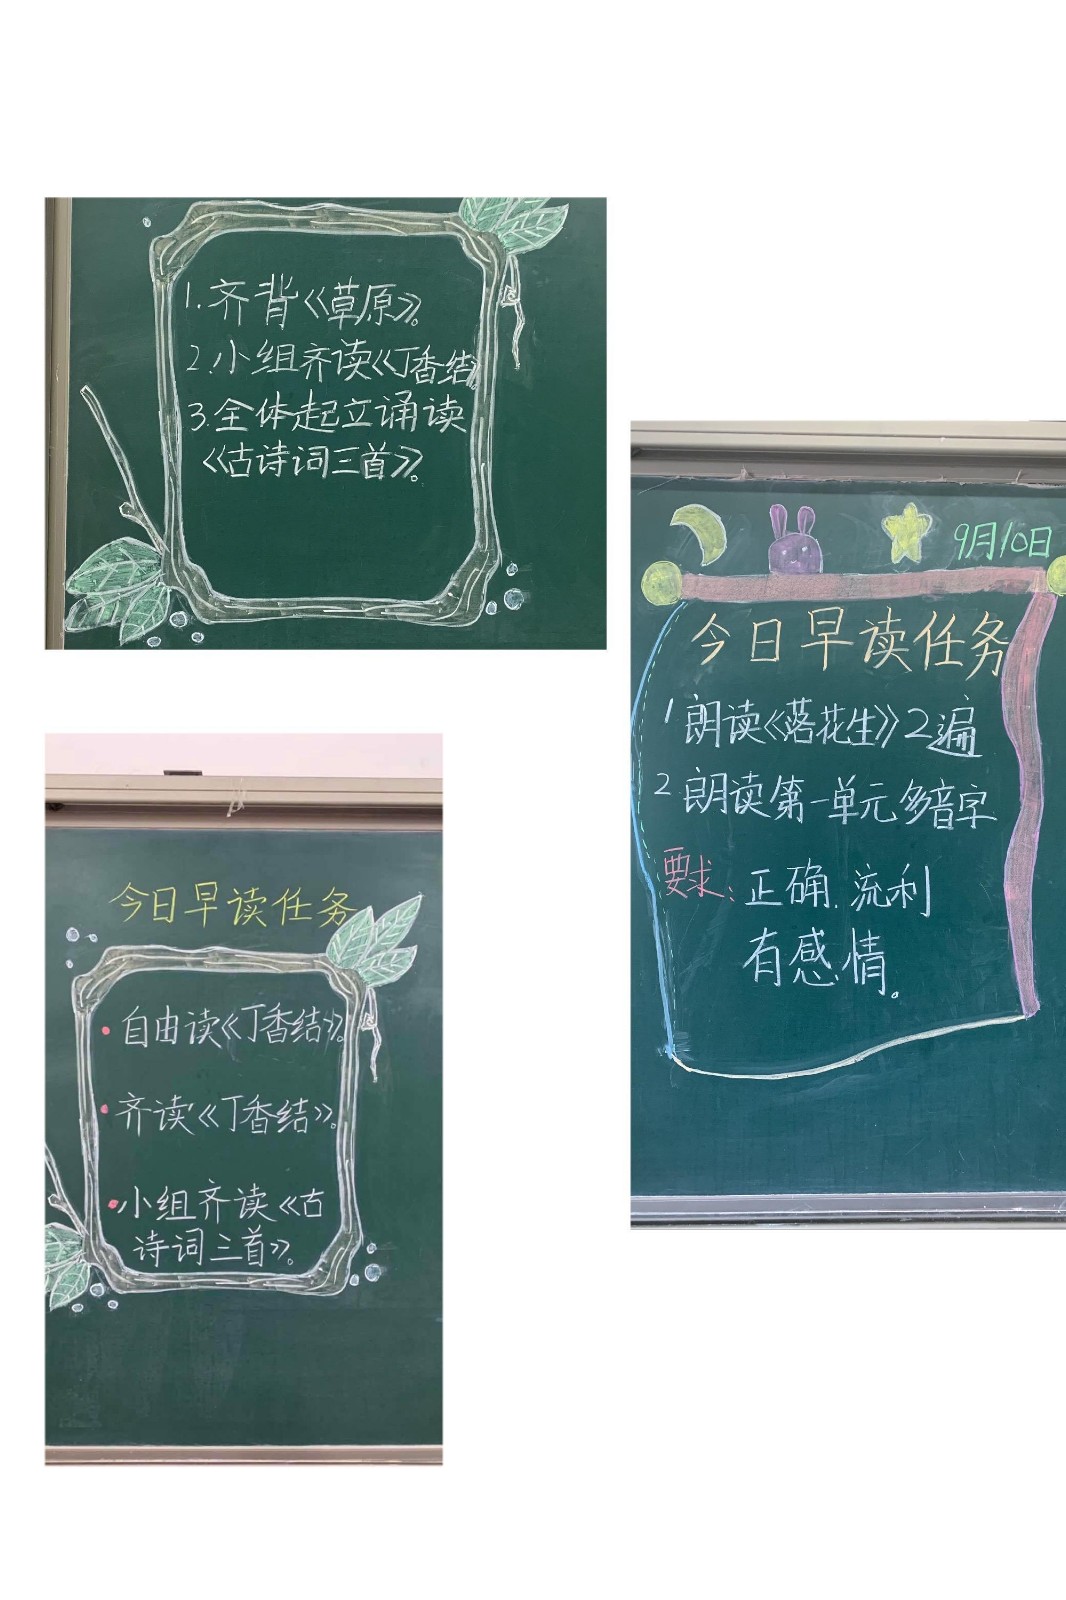 1.齐背《草原》。
2.小组齐读《丁香结》。
3.全体起立诵读
《古诗词三首》。
9月10日
今日早读任务
1 朗读《落花生》2遍
2.朗读第一单元多音字
要求：正确.流利
有感情。
今日早读任务
·自由读《丁香结》。
·齐读《丁香结》。
·小组齐读《古
诗词三首》。